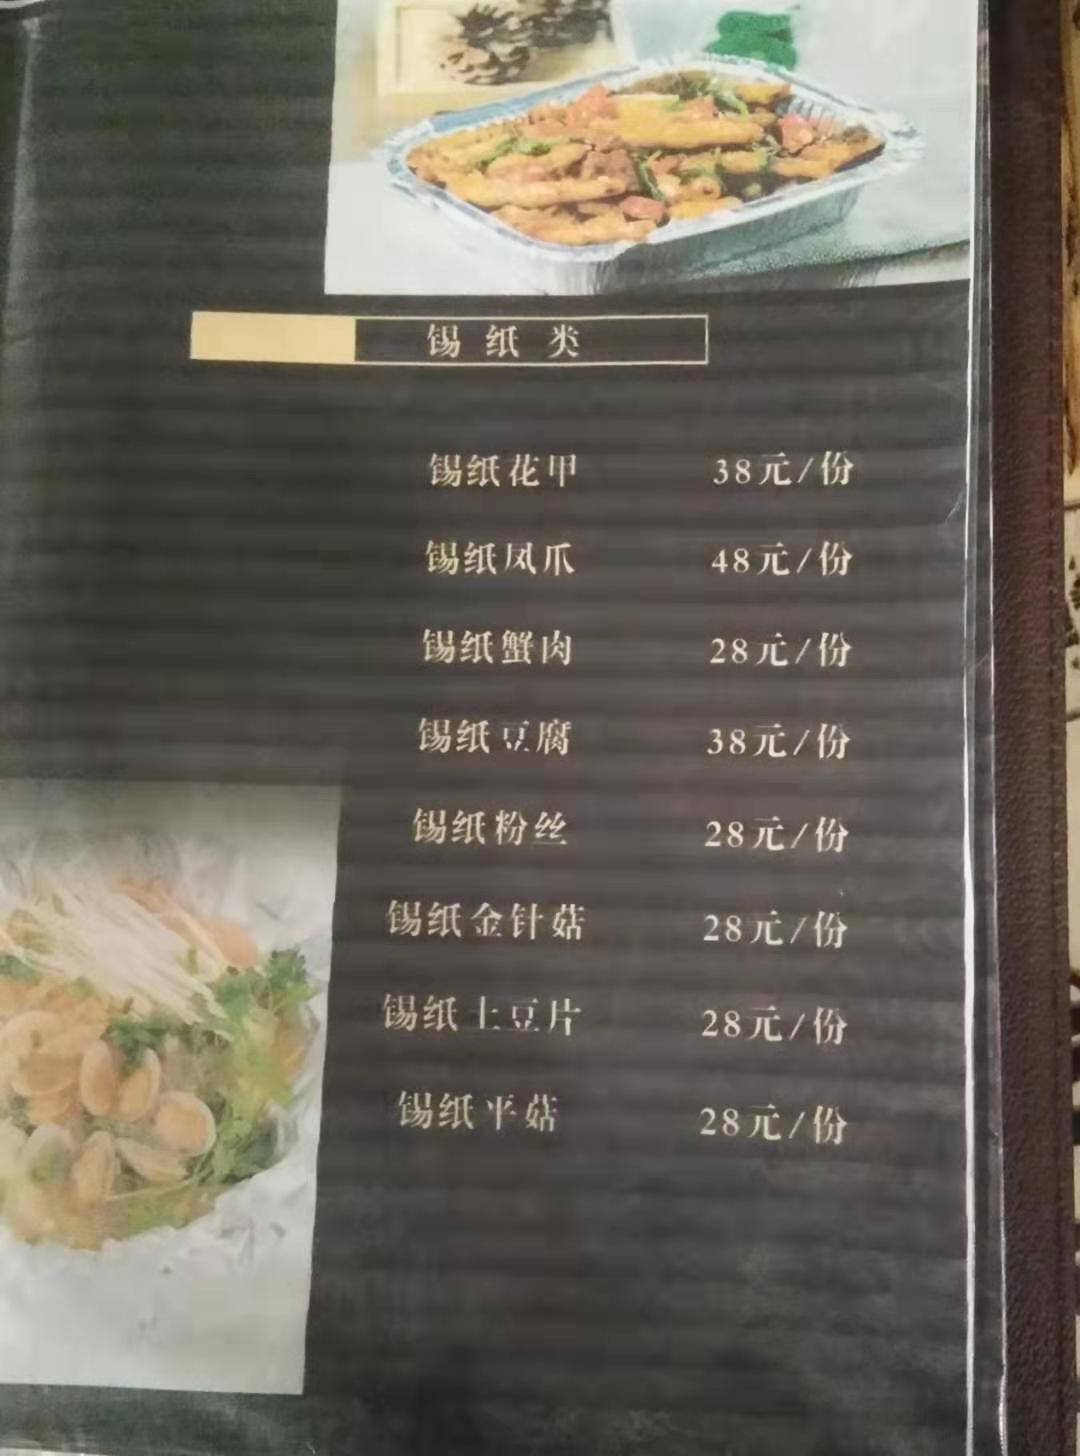 锡纸类
锡纸花甲 38元/份
锡纸凤爪 48元/份
锡纸蟹肉 28元/份
锡纸豆腐 38元/份
锡纸粉丝 28元/份
锡纸金针菇 28元/份
锡纸土豆片 28元/份
锡纸平菇 28元/份